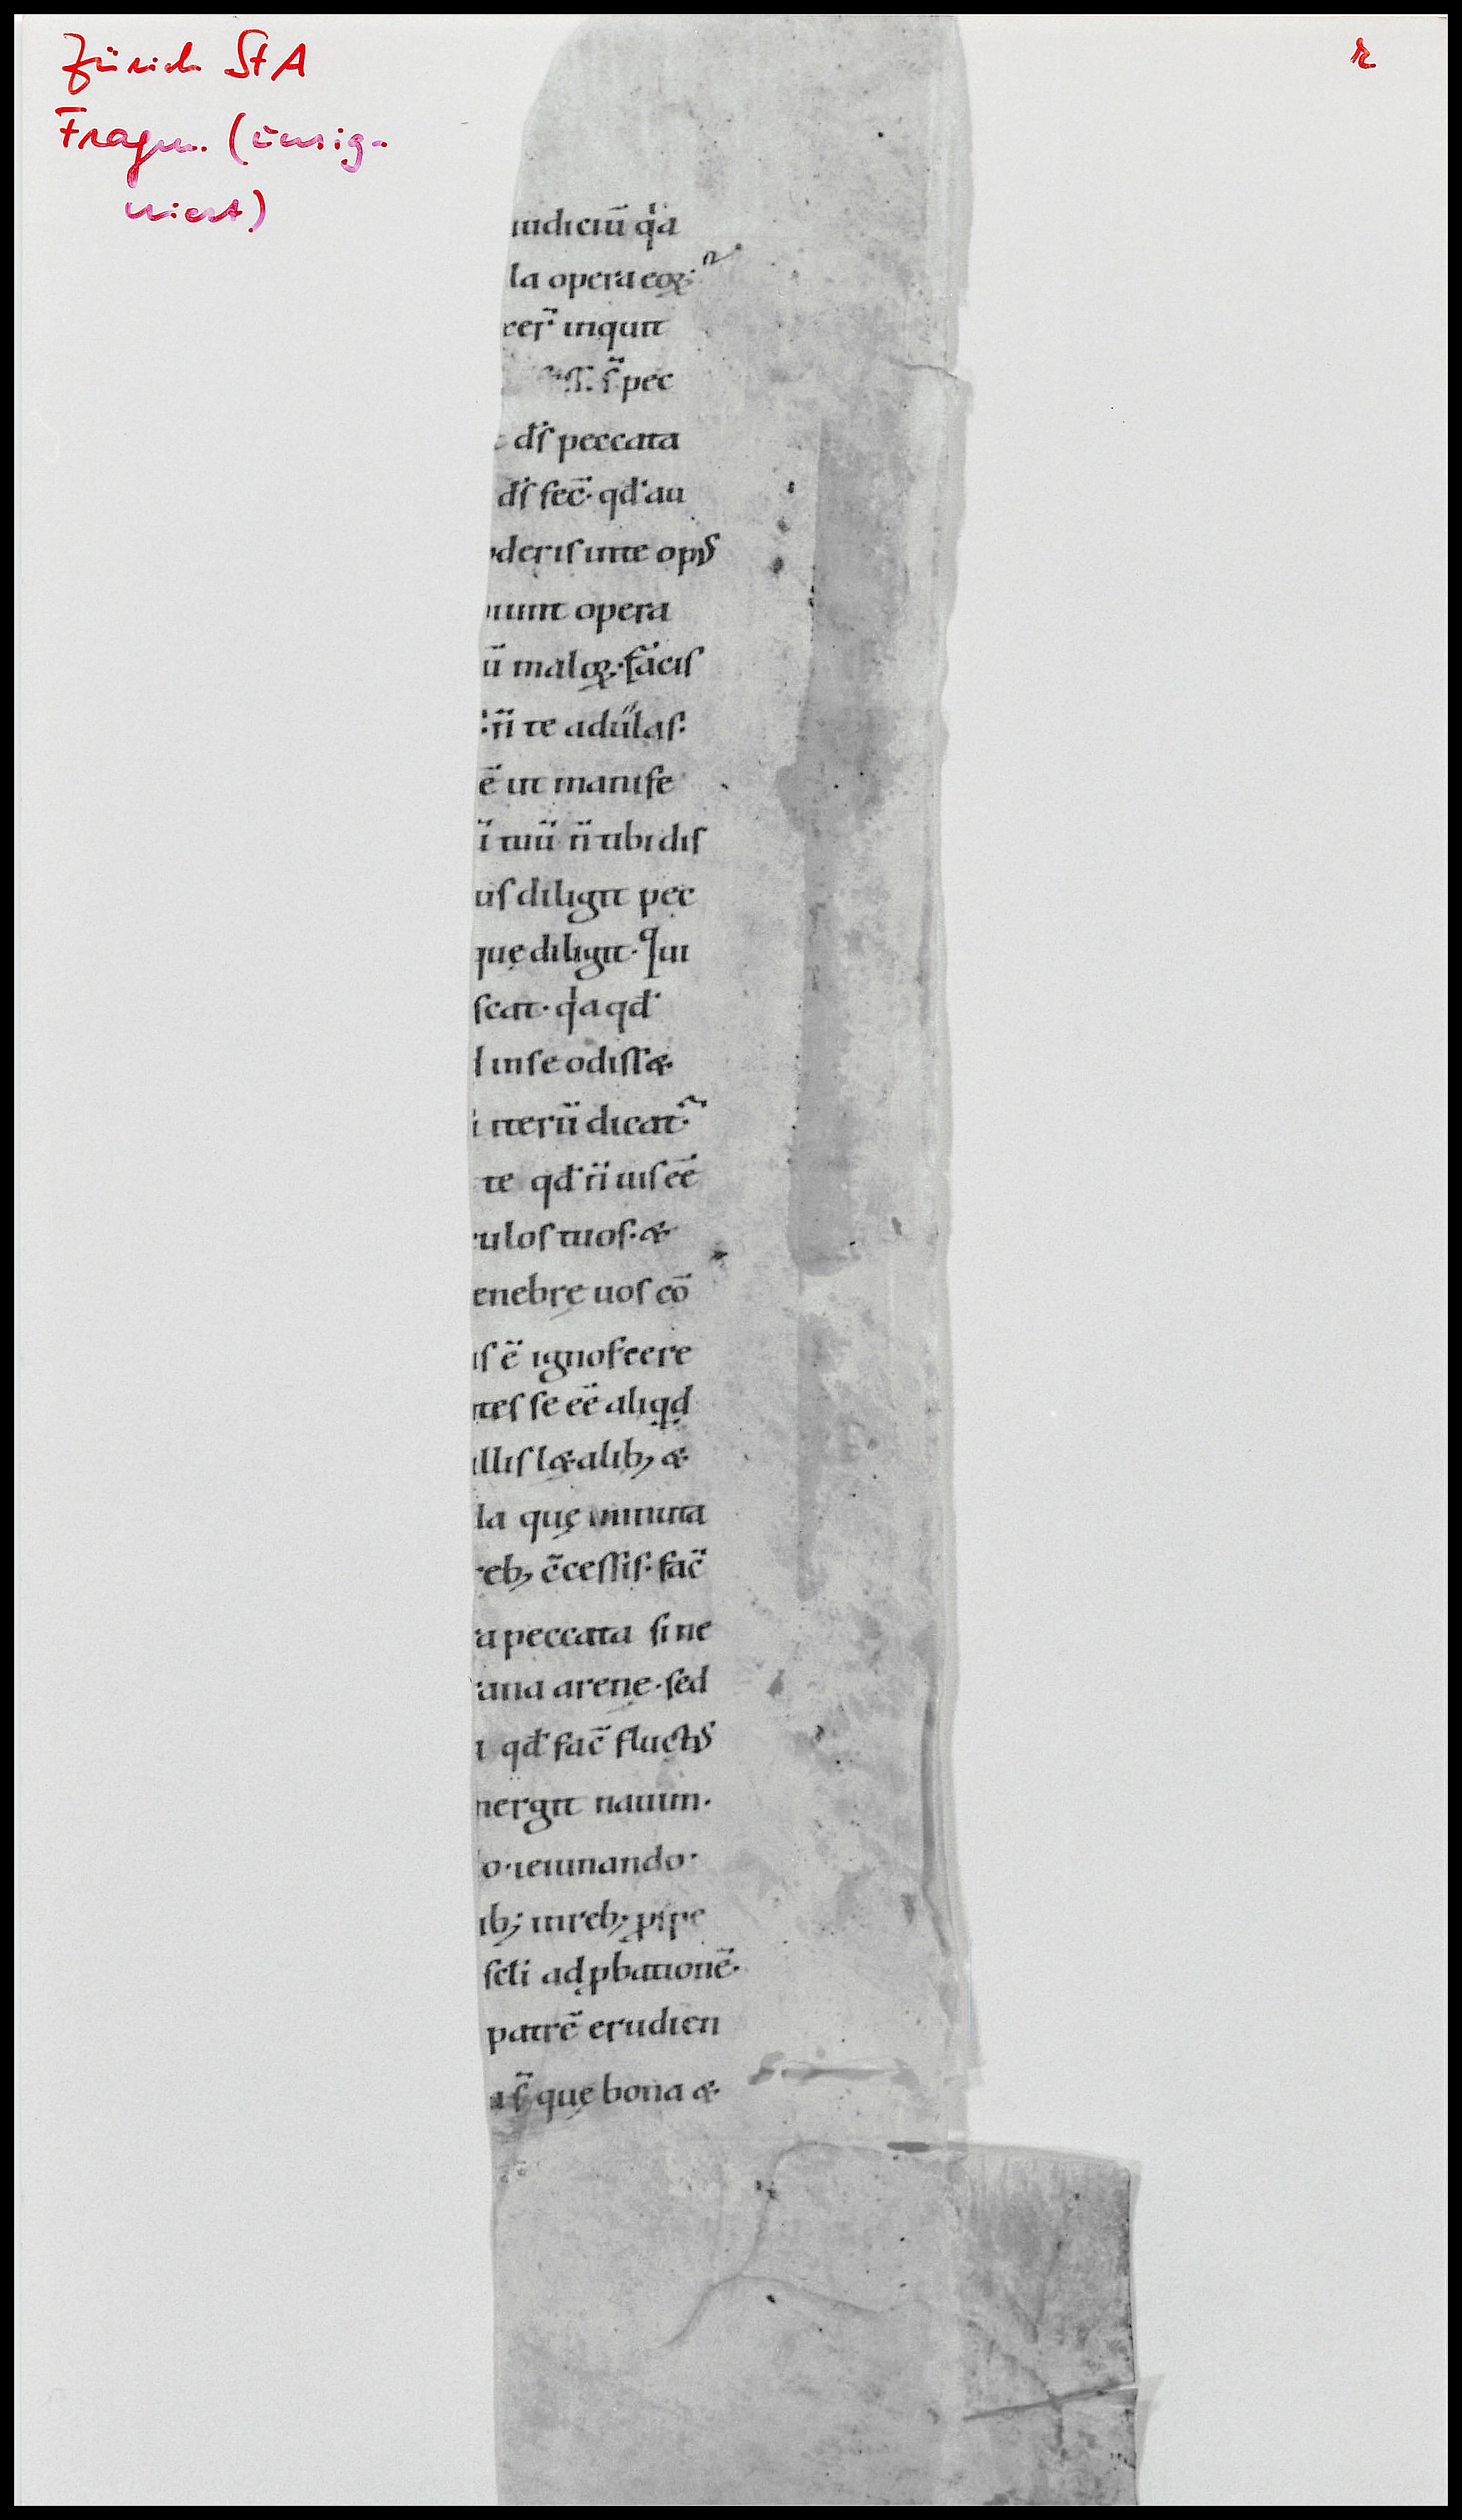 Zürich StA
Fragm. (unsig-
niert)
r
iudiciū qͥa
la opera eoꝝ·
inquit
s̄ pec
dſ̄ peccata
dſ̄ fec̄· qđ au
oderiſ in te opꝰ
iunt opera
ū maloꝝ· facıſ
n̄ te adūlaſ·
ē ut manife
ı̄ tuū n̄ tibi diſ
uſ diligit pec
quę diligit· Qui
ſcat· qͥa qđ
d in ſe odiſſ&
iterū dicat·
te qđ n̄ uiſ eē
culoſ tuoſ· &
enebrę uoſ cō
iſ ē ignoſcere
nteſ ſe eē aliqd
illiſ l&alib; &
la quę minuta
reb; c̄ceſſiſ· fac̄
ra peccata ſine
rana arene· ſed
a qđ fac̄ fluctꝰ
mergit nauim·
o· ieiunando·
ib; in reb; ꝓſpe
ſcł̄i ad ꝓbationē·
patrē erudien
ſ̄ quę bona &